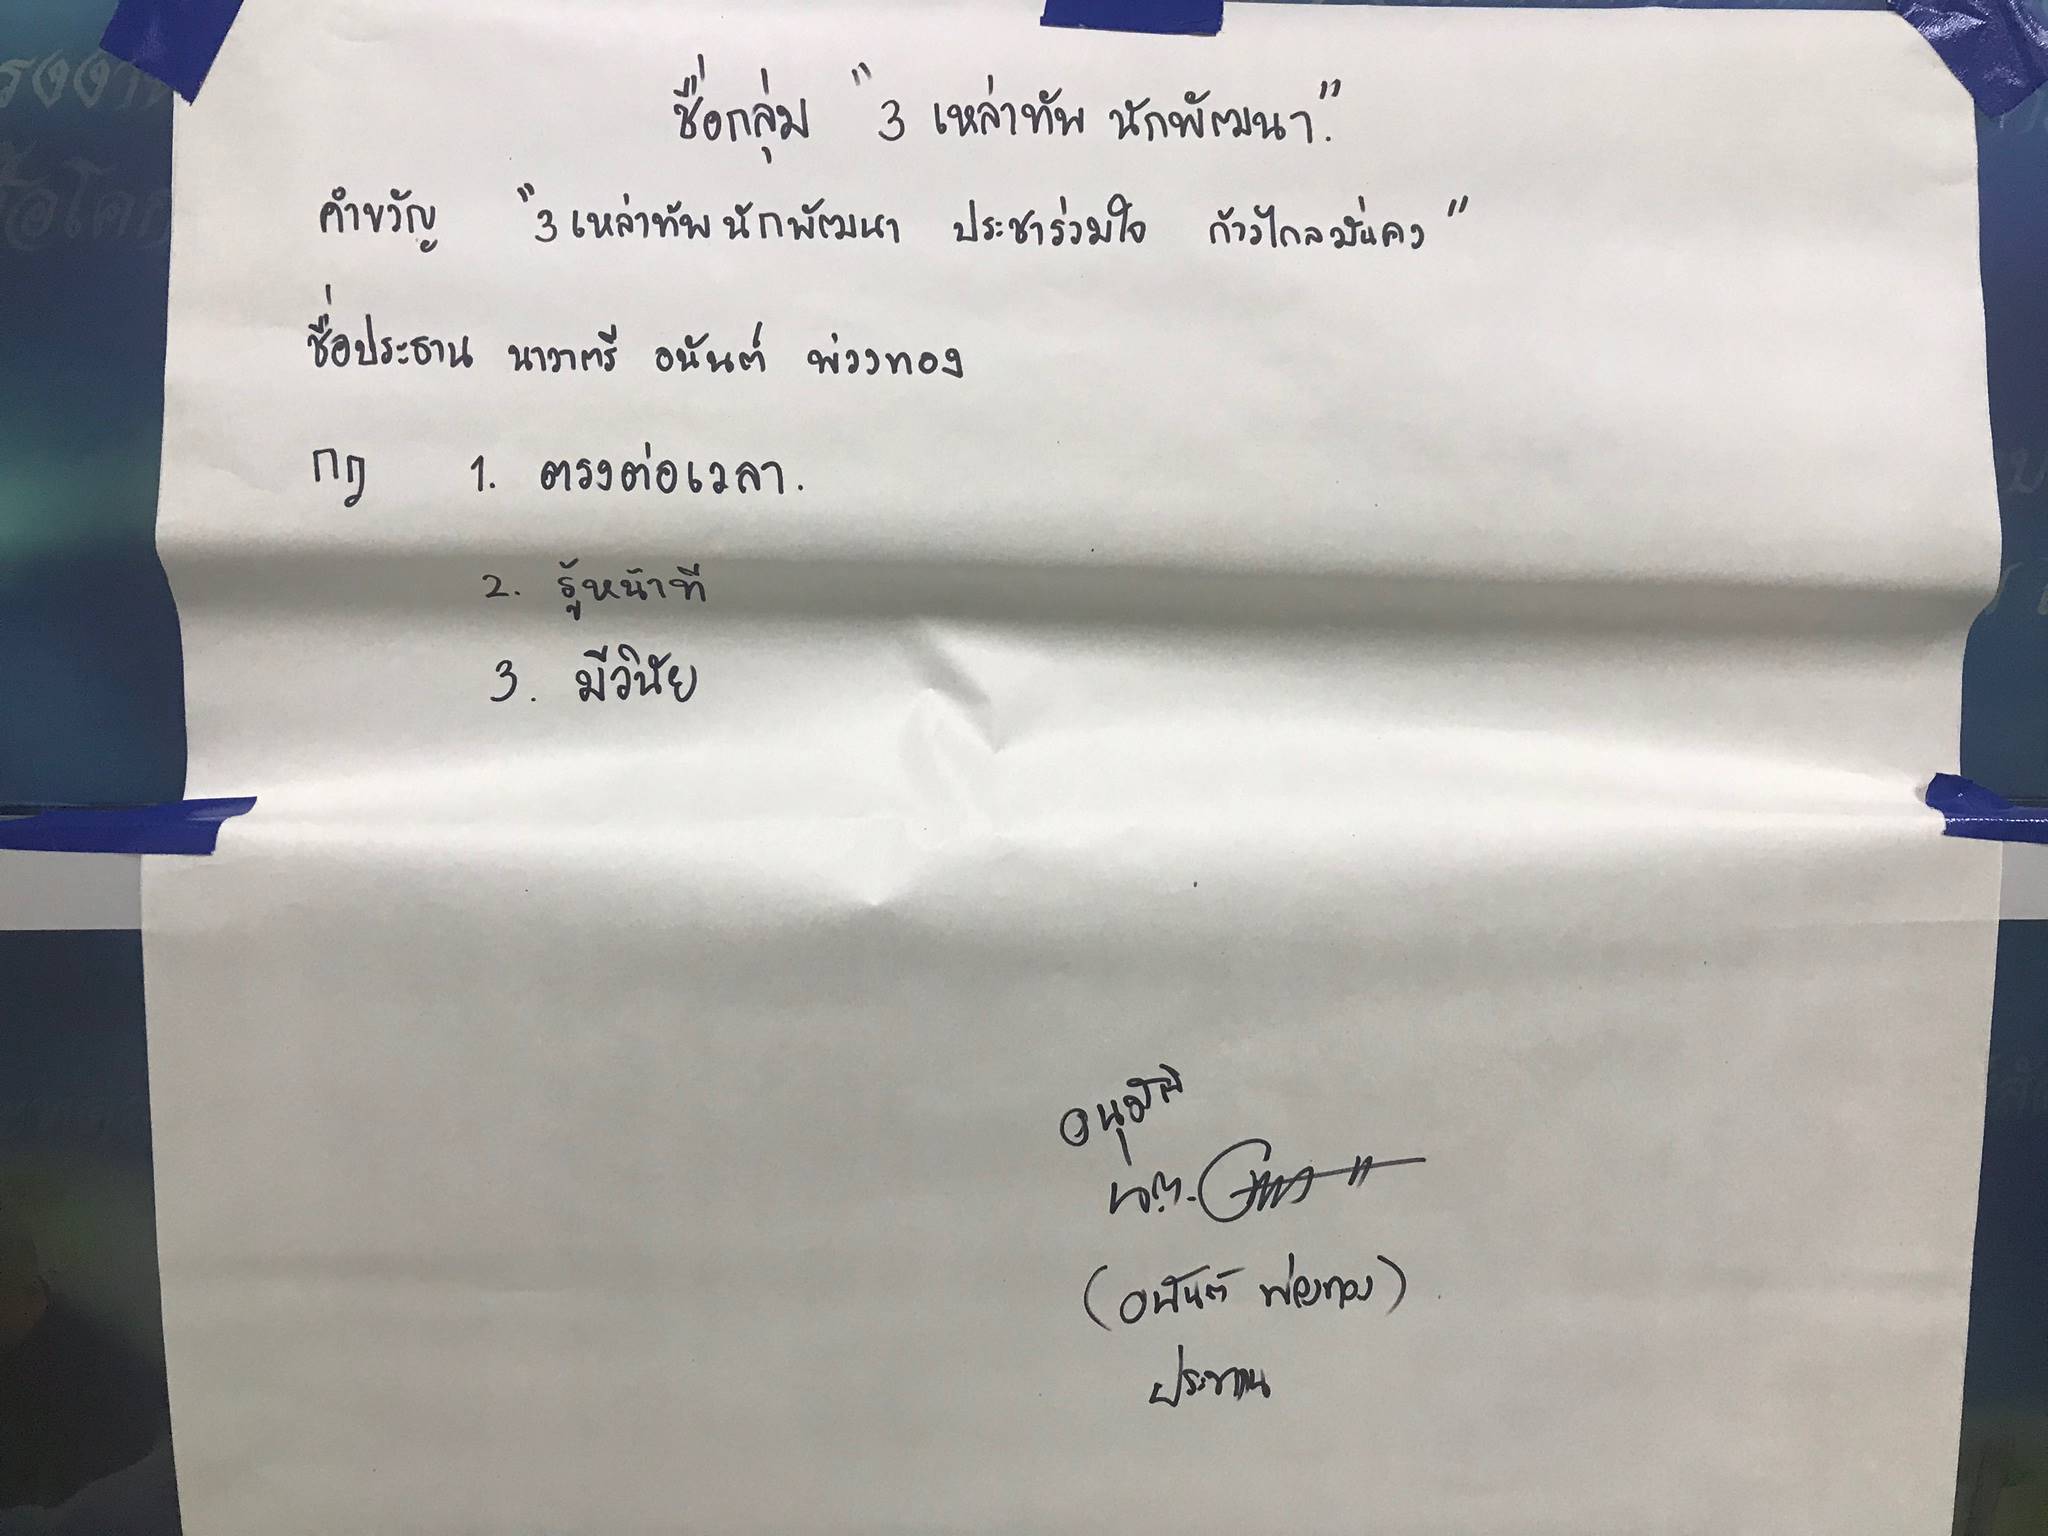 ชื่อกลุ่ม "3 เหล่าทัพ นักพัฒนา."
คำขวัญ "3 เหล่าทัพ นักพัฒนา ประชาร่วมใจ ก้าวไกลมั่นคง"
ชื่อประธาน นาวาตรี อนันต์ พ่วงทอง
กฎ 1. ตรงต่อเวลา.
2. รู้หน้าที่
3. มีวินัย
อนุมัติ
น.ต.
(อนันต์ พ่วงทอง)
ประธาน